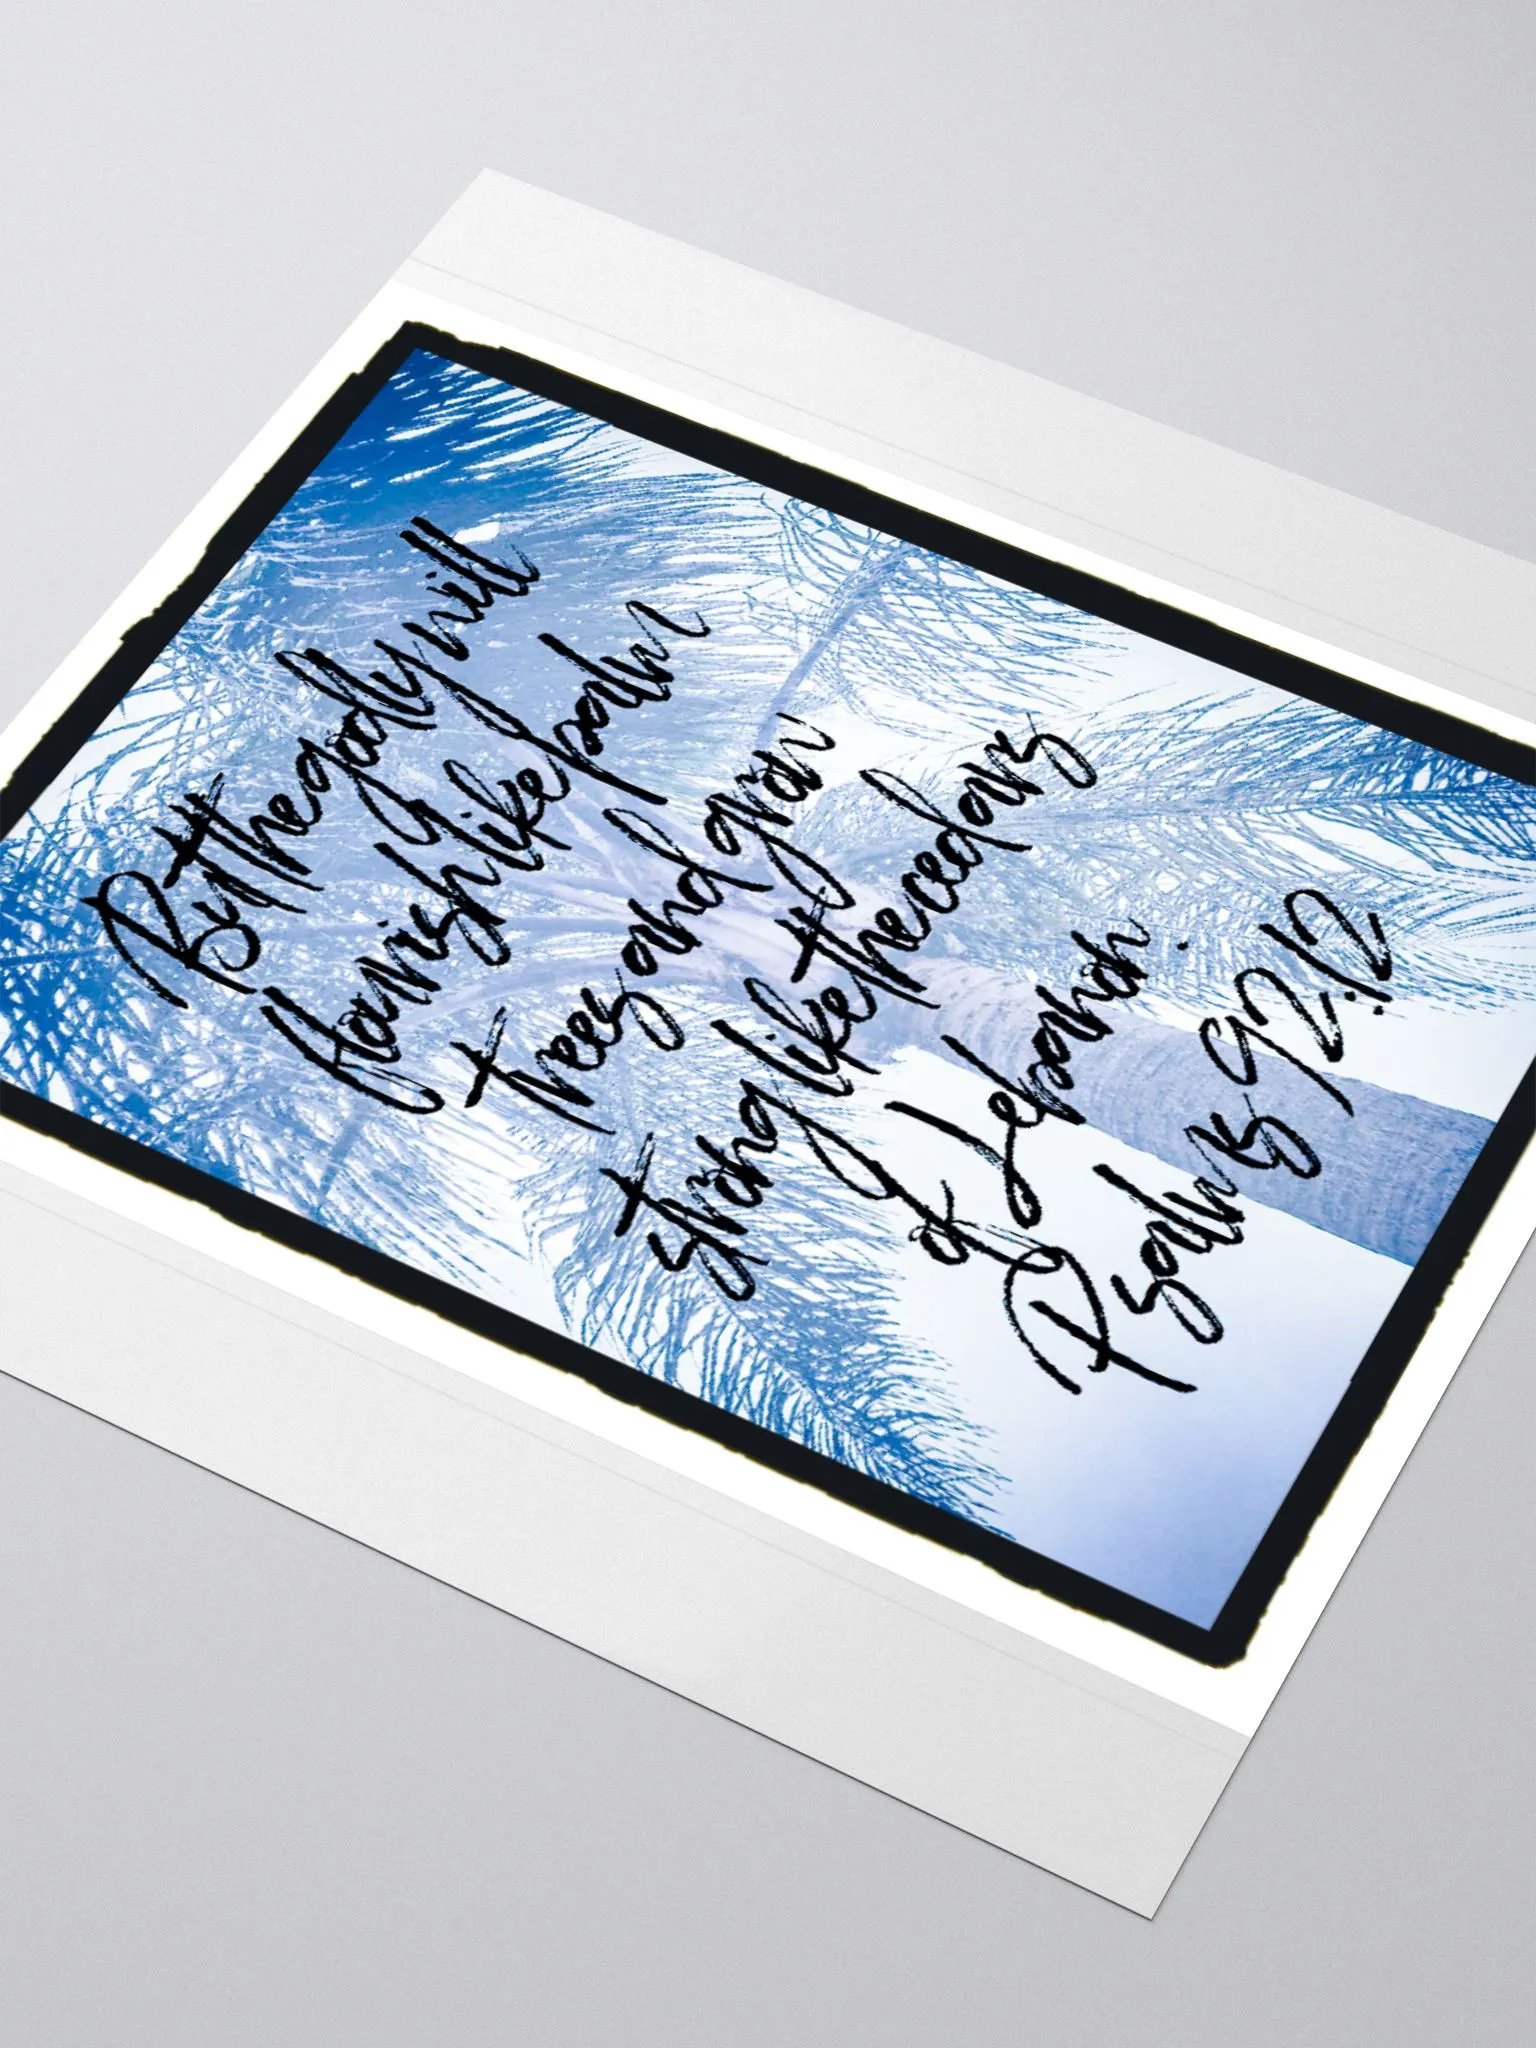 But the godly will
flourish like palm
trees and grow
strong like the cedars
of Lebanon.
Psalms 92:12